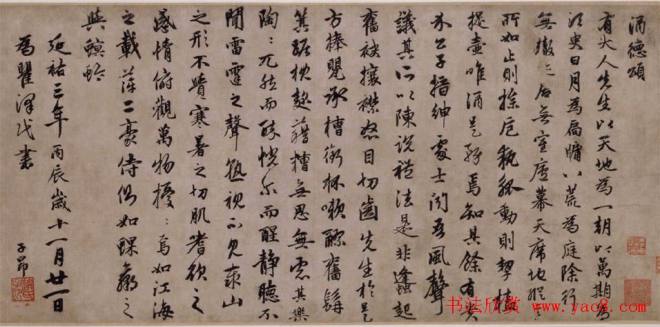 酒德頌
有大人先生以天地為一朝以萬期為
須臾日月為扃牖八荒為庭除行
無轍跡居無室廬幕天席地縱意
所如止則操卮執觚動則挈榼
提壺唯酒是務焉知其餘有貴
介公子搢紳處士聞吾風聲
議其所以陳說禮法是非蠭起
奮袂攘襟怒目切齒先生於是
方捧罌承槽銜杯漱醪奮髯
箕踞枕麴藉糟無思無慮其樂
陶〻兀然而醉恍爾而醒靜聽不
聞雷霆之聲熟視不見泰山
之形不覺寒暑之切肌嗜欲之
感情俯觀萬物擾〻焉如江海
之載萍二豪侍側如蜾蠃之
與螟蛉
延祐三年丙辰歲十一月廿一日
為瞿澤民書
子昂
书法欣赏 www.yac8.com